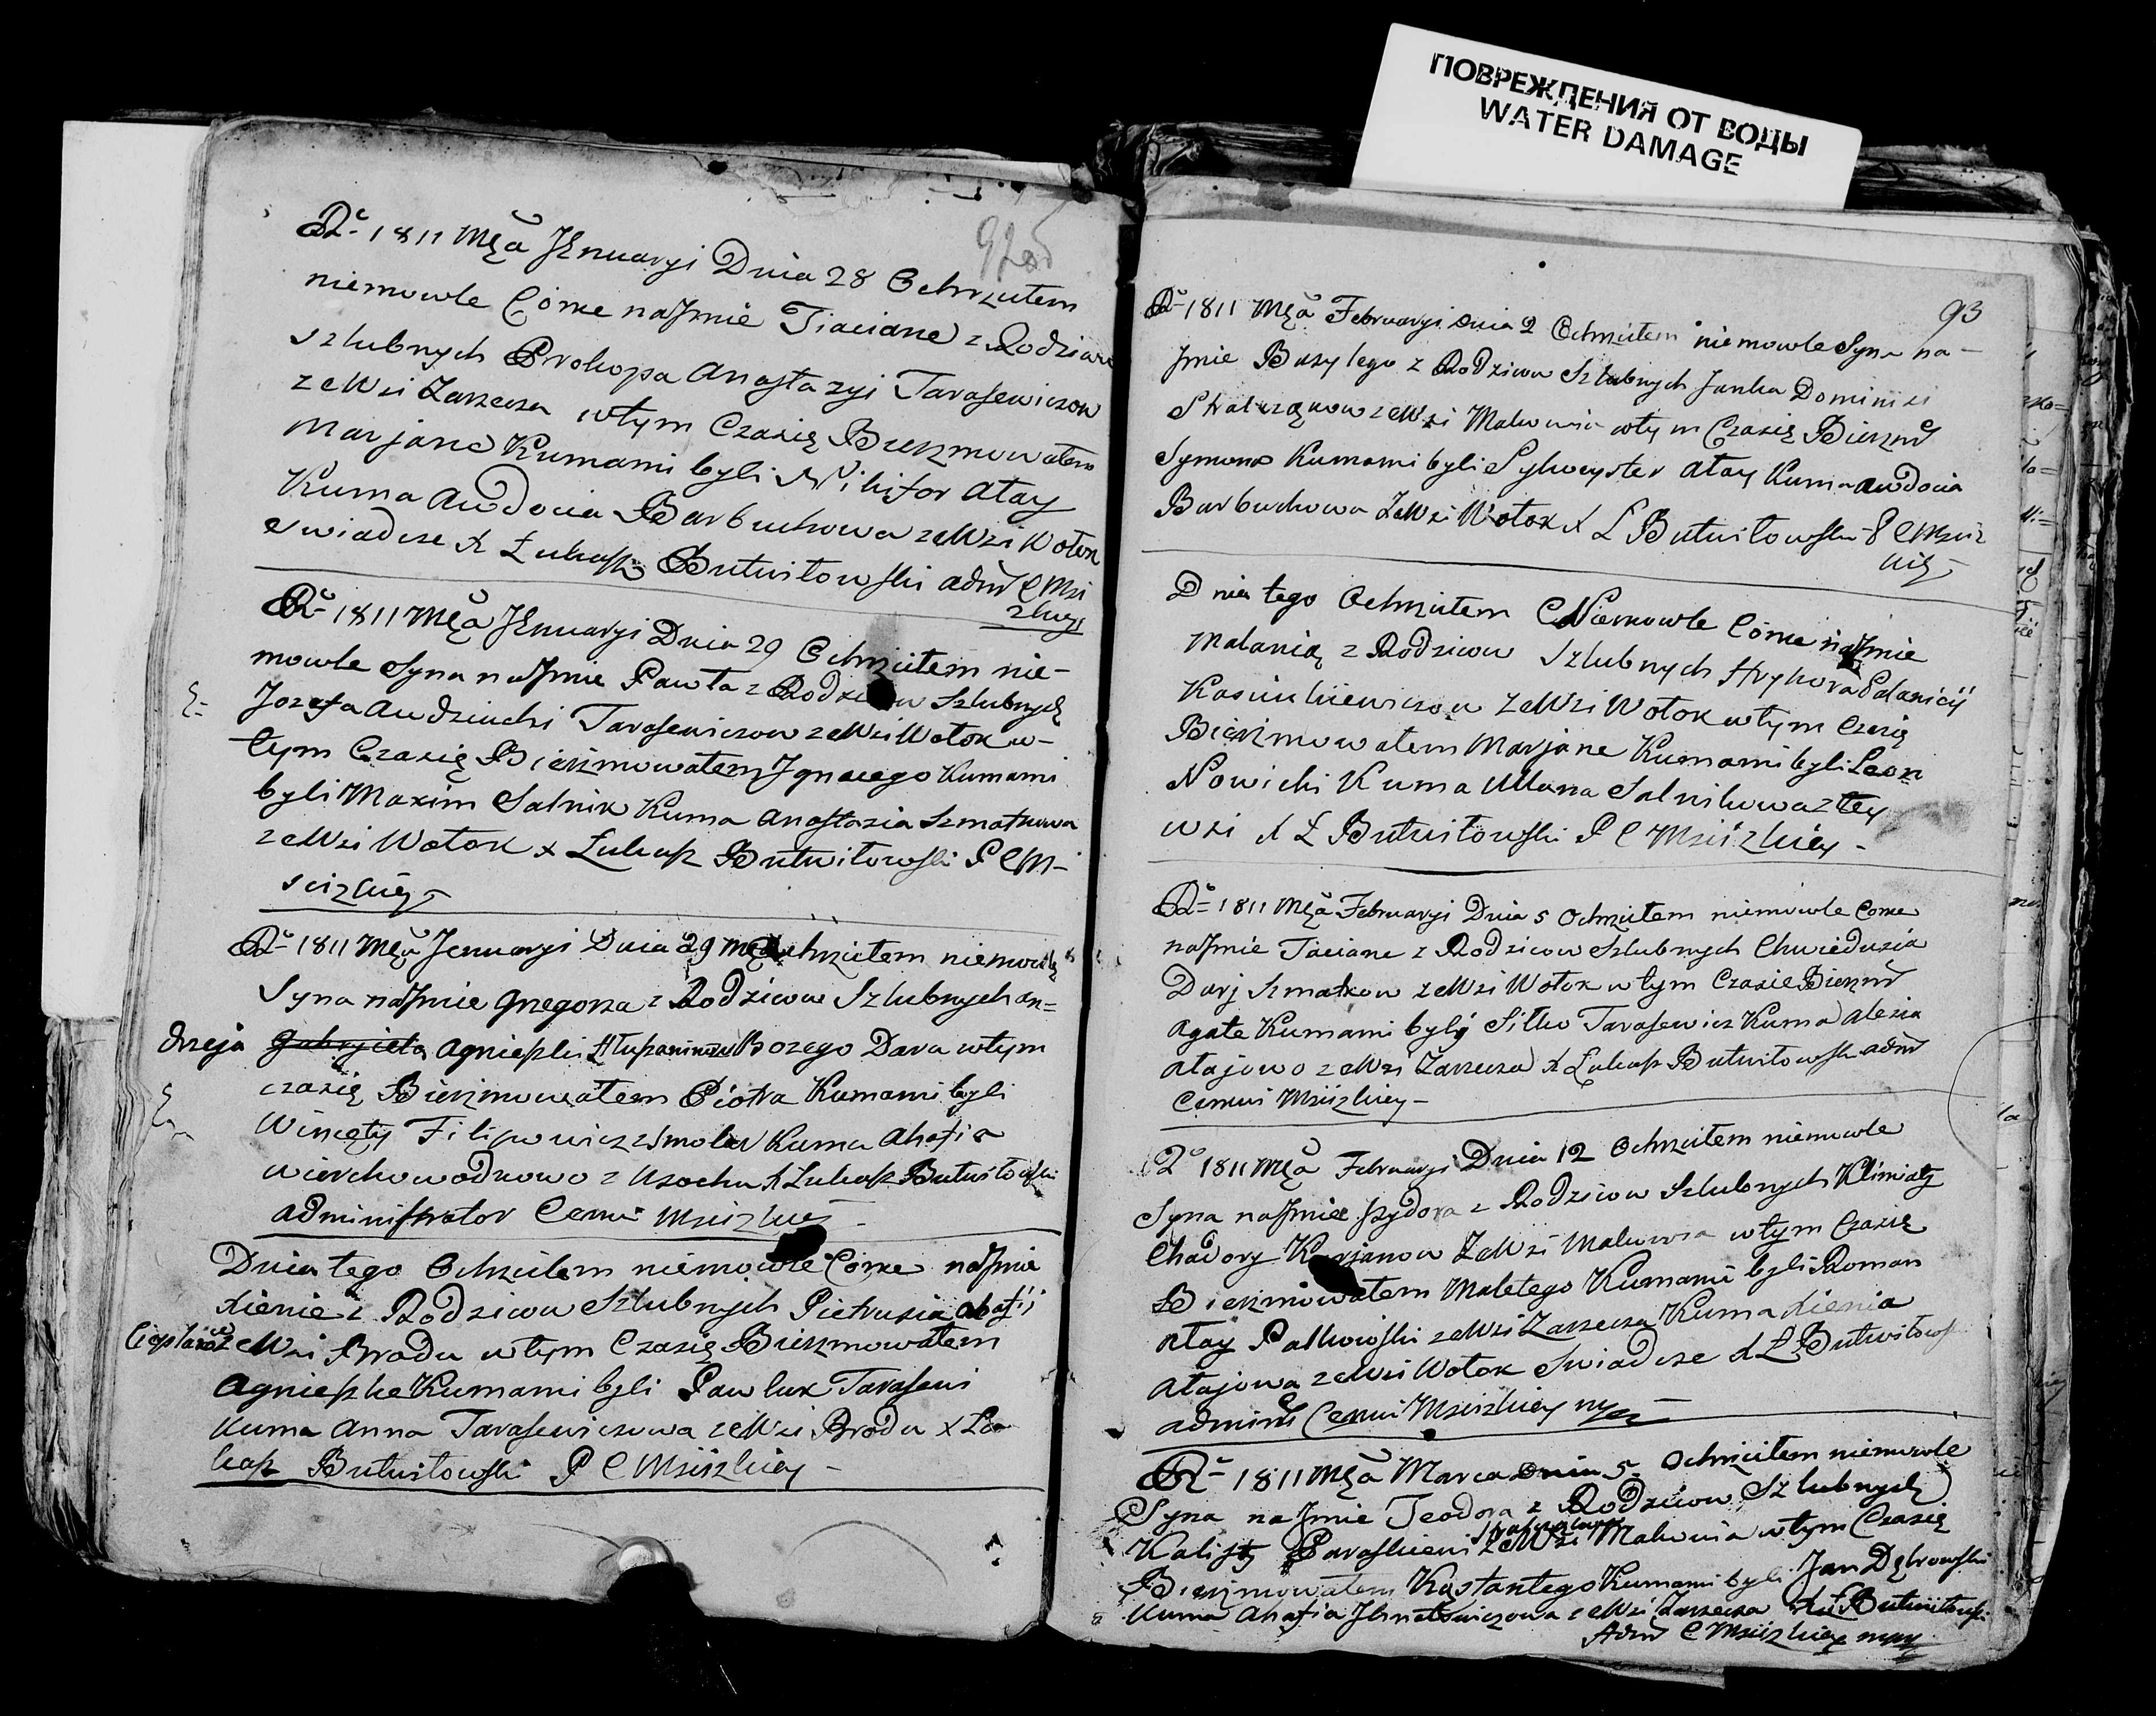 ПОВРЕЖДЕНИЯ ОТ ВОДЫ
WATER DAMAGE
92об
Rº 1811 Mca Jenuaryi Dnia 28 Ochrzciłem
niemowle Corke na Jmie Tiacianę z Rodziców
Szlubnych Prokopa Anastazyi Tarasewiczow
ze Wsi Zarzecza w tym Czasię Bierzmowałem
Marjanę Kumami byli Nikifor Ałay
Kuma Audocia Barbuchowa ze Wsi Wołok
Swiadcze X Łukasz Butwiłowski adm C Msci
zkiey
Rº 1811 Mca Jenuaryi Dnia 29 Ochrzciłem nie-
mowle Syna na Jmie Pawła z Rodziców Szlubnych
Jozefa Audziuchi Tarasewiczow ze Wsi Wołok w-
tym Czasię Bierzmowałem Jgnacego Kumami
byli Maxim Salnik Kuma Anastazia Szmatkowa
ze Wsi Wołok X Łukasz Butwiłowski P C M-
scizkiey
Rº 1811 Mca Jenuaryi Dnia 29 Ochrzciłem niemowle
Syna na Jmie Grzegorza z Rodzicow Szlubnych An=
drzeja Gabrjiela Agnieszki Bozego Dara w tym
czasię Bierzmowałem Piotra Kumami byli
Wincęty Filipowicz Smolar Kuma Ahafia
Wierchowodkowo z Usochu X Łukasz Butwiłowski
administrator Cerkwi Mscizkiey
Dnia tego Ochrzciłem niemowle Corke na Jmie
Xienie z Rodzicow Szlubnych Pietrusia Ahafii
Cieplakow ze Wsi Brodu w tym Czasię Bierzmowałem
Agnieszke Kumami byli Pawluk Tarasewi
Kuma Anna Tarasewiczowa ze Wsi Brodu X Łu
kasz Butwiłowski P C Mscizkiey -
93
Rº 1811 Mca Februaryi Dnia 2 Ochrzciłem niemowle Syna na-
Jmie Bazylego z Rodzicow Szlubnych Janka Dominisi
ze Wsi Makowia w tym Czasię Bierzm
Symona Kumami byli Sylwester Ałay Kuma Audocia
Barbuchowa Ze Wsi Wołok X Ł Butwiłowski P C Msciz
kiey
Dnia tego Ochrzciłem Niemowle Corke na Jmie
Malanią z Rodzicow Szlubnych Hryhora Palanicii
ze Wsi Wołok w tym Czasię
Bierzmowałem Marjane Kumami byli Leon
Nowicki Kuma Ullana Salnikowa z tey
wsi X Ł Butwiłowski P C Mscizkiey -
Rº 1811 Mca Februaryi Dnia 5 Ochrzciłem niemowle Corke
na Jmie Taciane z Rodzicow Szlubnych Chwiedusia
Darj Szmatkow ze Wsi Wołok w tym Czasie Bierzm
Agate Kumami byli Sitko Tarasewicz Kuma Alezia
Ałajowo ze Wsi Zarzecza X Łukasz Butwiłowski adm
Cerkwi Mscizkiey -
Rº 1811 Mca Februaryi Dnia 12 Ochrzciłem niemowle
Syna na Jmie Jzydora z Rodzicow Szlubnych Klimiaty
Chadory Ze Wsi Makowia w tym Czasię
Bierzmowałem Małetego Kumami byli Roman
Ałay Palkowski ze Wsi Zarzecza Kuma Xienia
Ałajowa ze Wsi Wołok Swiadcze X Ł Butwiłows
admin Cerkwi Mscizkiey mp
Rº 1811 Mca Marca Dnia 5 Ochrzciłem niemowle
Syna na Jmie Teodora z Rodzicow Szlubnych
Kalisty Paraskiewi ze Wsi Makowia w tym Czasię
Bierzmowałem Kostantego Kumami byli Jan Dębrowski
Kuma Ahafia Jhnatowiczowa ze Wsi Zarzecza X Ł Butwiłowski
Adm C Mscizkiey mp